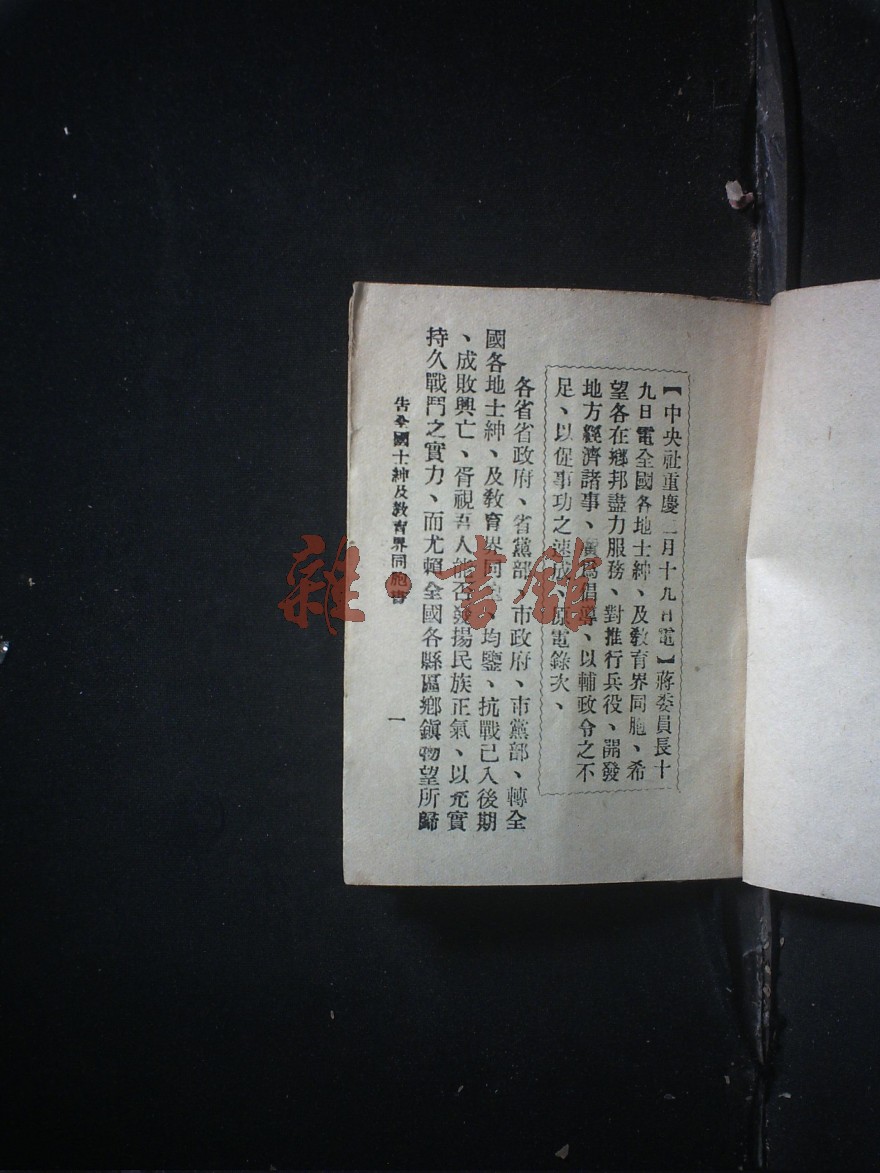 【中央社重慶二月十九日電】蔣委員長十
九日電全國各地士紳、及教育界同胞、希
望各在鄉邦盡力服務、對推行兵役、開發
地方經濟諸事、廣為倡導、以輔政令之不
足、以促事功之速成、原電錄次、
各省省政府、省黨部、市政府、市黨部、轉全
國各地士紳、及教育界同胞、均鑒、抗戰已入後期
、成敗興亡、胥視吾人能否發揚民族正氣、以充實
持久戰鬥之實力、而尤賴全國各縣區鄉鎮物望所歸
告全國士紳及教育界同胞書
一
雜·書館